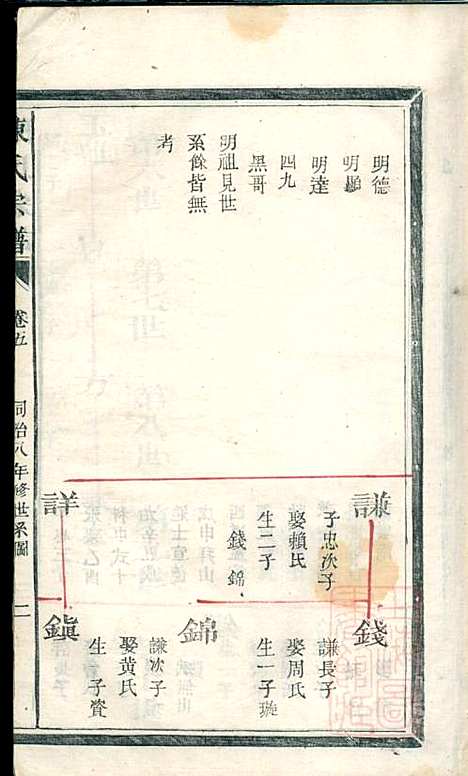 明德
明勵
明達
四九
黑哥
明祖見世
系餘皆無
考
謙
子忠次子
娶賴氏
生二子
錢 錦
詳
錢
謙長子
娶周氏
生一子璇
錦
謙次子
娶黃氏
生一子賨
鎭
陳氏宗譜
卷五
同治八年修世系圖
二